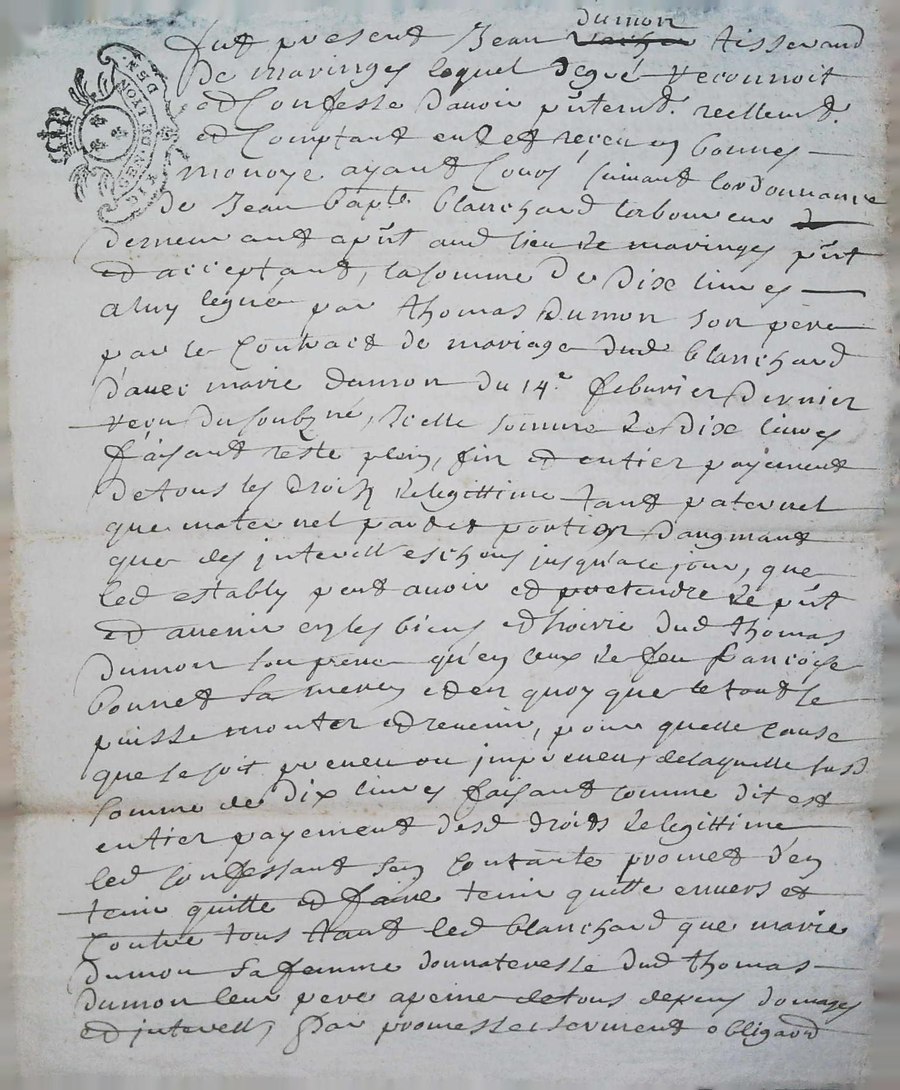 dumon
fut present Jean tisserand
de maringes lequel degré reconnoit
et Confesse davoir pntemt. reellemt.
et Comptant eu et reçeu en bonnes
monoye ayant Cours suivant lordonnance
de Jean bapte. blanchard laboureur
demeurant a pnt aud lieu de maringes pnt
et acceptant, la somme de dix livres
a luy legué par thomas Dumon son pere
par le Contract de mariage dud blanchard
d'avec marie dumon du 14.e feburier dernier
reçu du soubzné, Icelle somme de dix livres
faisant reste plein, fin et entier payement
de tous les droits de legittime tant paternel
que maternel part et portion d'augmant
que des interest eschous jusqu'a ce jour, que
led estably peut avoir et pretendre de pnt
et avenir en les biens et hoirie dud thomas
dumon son pere qu'en ceux de feu françoise
bonnet sa mere, et en quoy que le tout se
puisse monter et revenir, pour quelle cause
que se soit preveu ou impreveu, de laquelle susd
somme de dix livres faisant comme dit est
entier payement desd droits de legittime
led confessant s'en contante promet d'en
tenir quitte et faire tenir quitte envers et
contre tous tant led blanchard que marie
dumon sa femme donnateresse dud thomas
dumon leur pere a peine de tous depens domages
et interest, Par promesse serment obligaōn
GEN. DE LYON